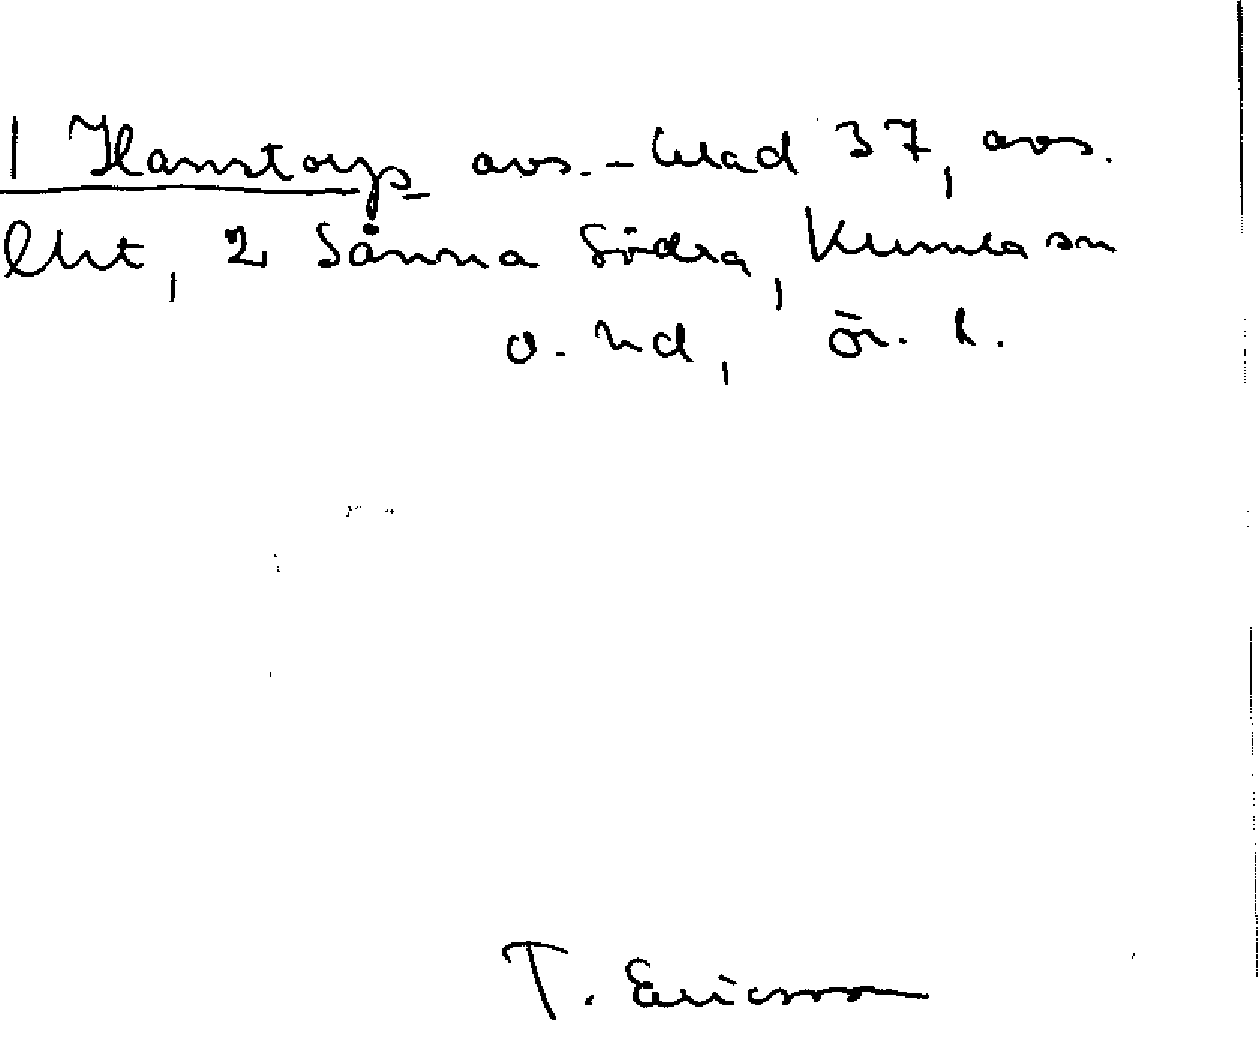 1 Hamstorp avs. - blad 37, avs.
lht, 2 Sånna Södra, Kumla sn
o. hd, Ör. l.
T. Ericsson